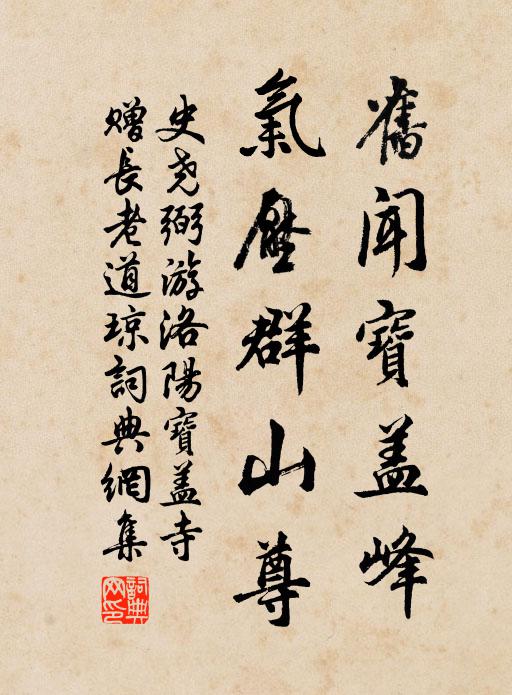 舊聞寶蓋峰
氣壓群山尊
史堯弼游洛陽寶蓋寺
贈長老道琼詞典網集
詞典網印